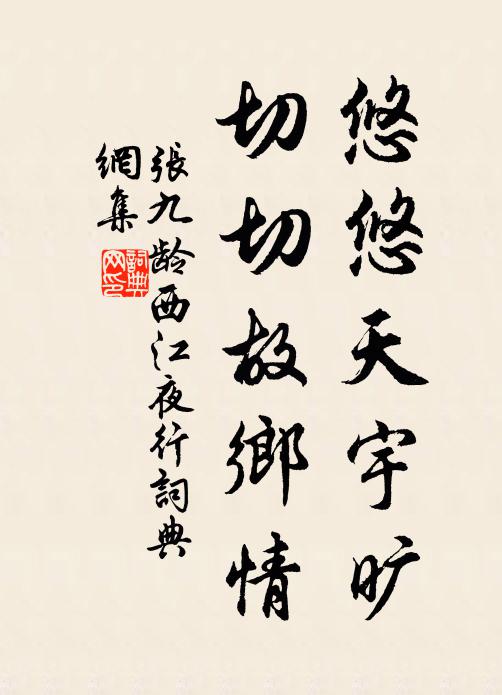 悠悠天宇旷
切切故鄉情
張九龄西江夜行詞典
網集
詞典
网印